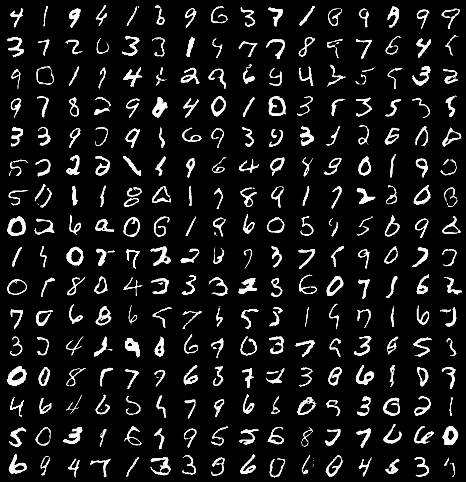 4 1 9 4 1 9 6 3 7 1 8 9 8 9 9
3 7 2 0 3 3 1 9 7 7 8 9 7 6 4
9 0 1 9 4 2 9 6 9 4 5 9 3 2
9 7 8 2 9 8 4 0 1 0 3 3 5 3 5
3 3 9 7 9 6 9 3 9 3 2 6 0
5 2 2 2 1 9 6 4 9 8 9 0 1 9 0
5 0 1 1 8 2 1 9 8 9 1 7 2 3 0 8
0 2 6 2 0 6 1 8 6 0 5 9 5 6 9
1 0 7 2 2 9 3 7 9 0 7
0 8 0 4 3 3 3 2 8 6 0 7 1 6 2
7 0 6 8 6 5 7 5 3 1 9 7 1 6
3 4 9 8 6 9 0 3 7 9 3 8 5 3
0 0 8 7 7 6 3 7 2 3 8 6 1 0 3
4 6 4 6 5 7 9 6 0 9 3 0 2 1
5 0 3 9 6 9 9 5 5 6 8 7 7 6 6 0
6 9 4 7 1 3 3 9 6 0 6 8 4 5 3